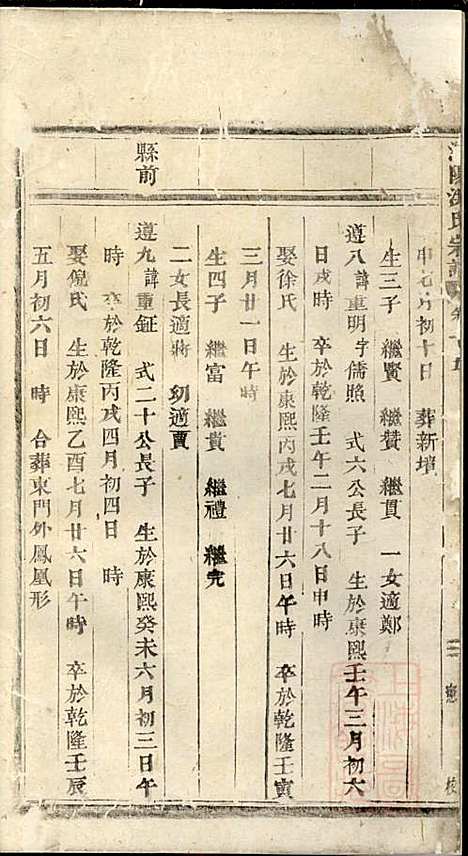 陽洪氏宗譜
申七月初十日 葬新壇
生三子 繼賢 繼贊 繼貫 一女適鄭
遵八諱重明字儒照 式六公長子 生於康熙壬午三月初六
日戌時 卒於乾隆壬午二月十八日申時
娶徐氏 生於康熙丙戌七月廿六日午時 卒於乾隆壬寅
三月廿一日午時
生四子 繼富 繼貴 繼禮 繼完
二女長適蔣 幼適賈
縣前
遵九諱重鉦 式二十公長子 生於康熙癸未六月初三日午
時 卒於乾隆丙戌四月初四日 時
娶倪氏 生於康熙乙酉七月廿六日午時 卒於乾隆壬辰
五月初六日 時 合葬東門外鳳凰形